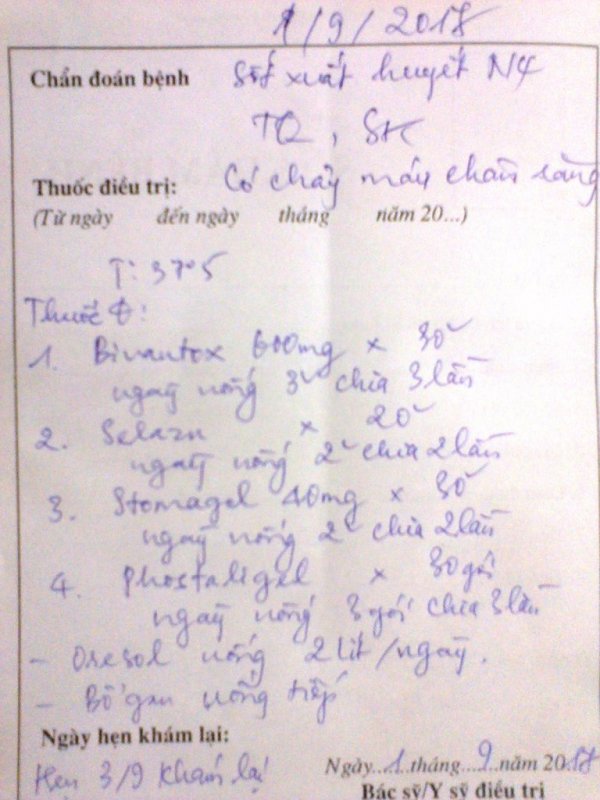 1/9/2017
Chẩn đoán bệnh Sốt xuất huyết N4
TQ, SK
Thuốc điều trị: Có chảy máu chân răng
(Từ ngày đến ngày tháng năm 20...)
T: 37°5
Thuốc Đ:
1. Bivantox 600mg x 30v
ngày uống 3v chia 3 lần
2. Selazn x 20v
ngày uống 2v chia 2 lần
3. Stomagel 40mg x 30v
ngày uống 2v chia 2 lần
4. Phostaligel x 30 gói
ngày uống 3 gói chia 3 lần
- Oresol uống 2 lít/ngày.
- Bổ gan uống tiếp
Ngày hẹn khám lại:
Hẹn 3/9 khám lại
Ngày...1...tháng...9...năm 2017
Bác sỹ/Y sỹ điều trị